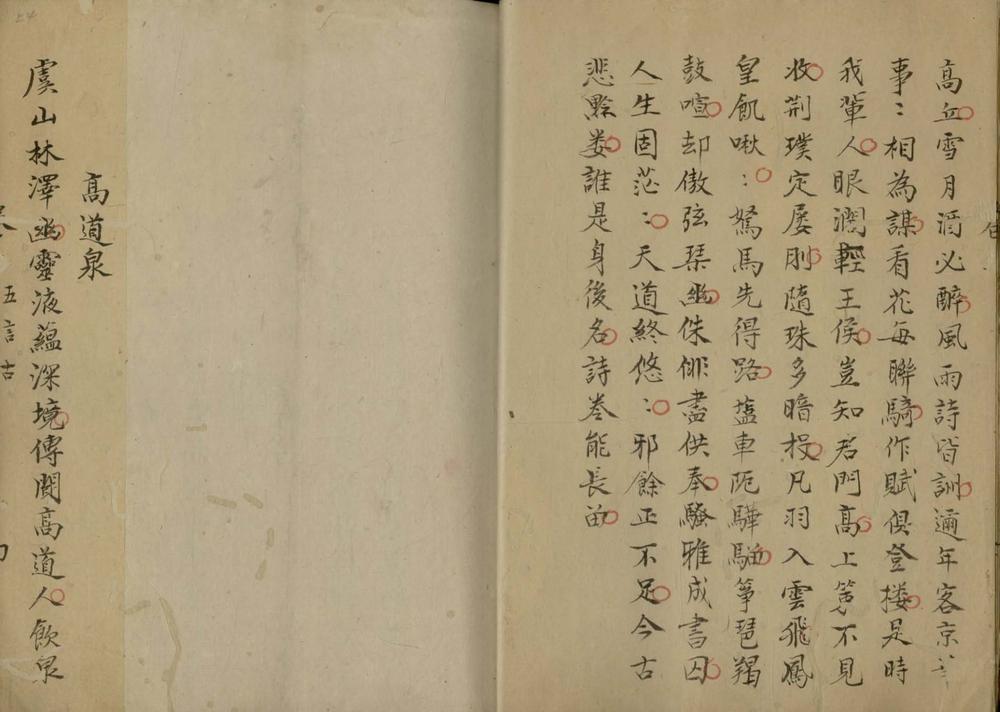 高丘雪月酒必醉風雨詩皆訓邇年客京
事〻相為謀看花每聯騎作賦俱登樓是時
我輩人眼濶輕王侯豈知君門高上第不見
收荆璞定屡刖隨珠多暗投凡羽入雲飛鳳
皇飢啾〻駑馬先得路塩車阨驊騮箏琶羯
鼓喧却傲弦琹幽侏俳盡供奉騷雅成書囚
人生固茫〻天道終悠〻邪餘正不足今古
悲黔婁誰是身後名詩卷能長留
高道泉
虞山林澤幽靈液蘊深境傳聞高道人飲泉
五言古